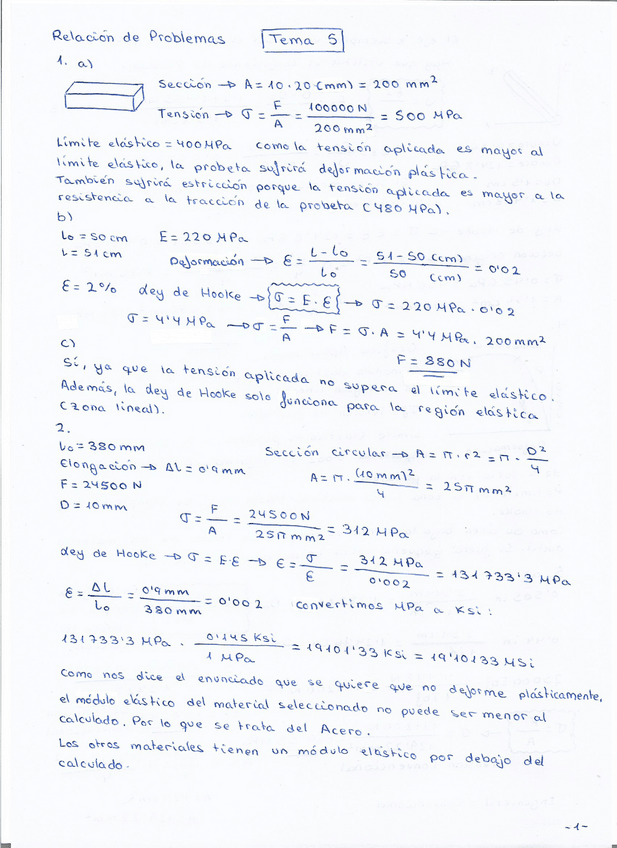 Relación de Problemas Tema 5
1. a)
Sección → A = 10 · 20 (mm) = 200 mm²
Tensión → σ = F/A = 100000 N / 200 mm² = 500 MPa
Límite elástico = 400 MPa como la tensión aplicada es mayor al
límite elástico, la probeta sufrirá deformación plástica.
También sufrirá estricción porque la tensión aplicada es mayor a la
resistencia a la tracción de la probeta (480 MPa).
b)
l₀ = 50 cm E = 220 MPa
l = 51 cm Deformación → ε = (l - l₀)/l₀ = 51 - 50 (cm) / 50 (cm) = 0'02
ε = 2% Ley de Hooke → σ = E · ε → σ = 220 MPa · 0'02
σ = 4'4 MPa → σ = F/A → F = σ · A = 4'4 MPa · 200 mm²
F = 880 N
c)
Sí, ya que la tensión aplicada no supera el límite elástico.
Además, la Ley de Hooke solo funciona para la región elástica
(zona lineal).
2.
l₀ = 380 mm Sección circular → A = π · r² = π · D²/4
Elongación → Δl = 0'9 mm A = π · (10 mm)²/4 = 25π mm²
F = 24500 N
D = 10 mm σ = F/A = 24500 N / 25π mm² = 312 MPa
Ley de Hooke → σ = E·ε → ε = σ/ε = 312 MPa / 0'002 = 131733'3 MPa
ε = Δl/l₀ = 0'9 mm / 380 mm = 0'002 convertimos MPa a Ksi:
131733'3 MPa · 0'145 Ksi / 1 MPa = 19101'33 Ksi = 19'10133 MSi
Como nos dice el enunciado que se quiere que no deforme plásticamente,
el módulo elástico del material seleccionado no puede ser menor al
calculado. Por lo que se trata del Acero.
Los otros materiales tienen un módulo elástico por debajo del
calculado.
-1-